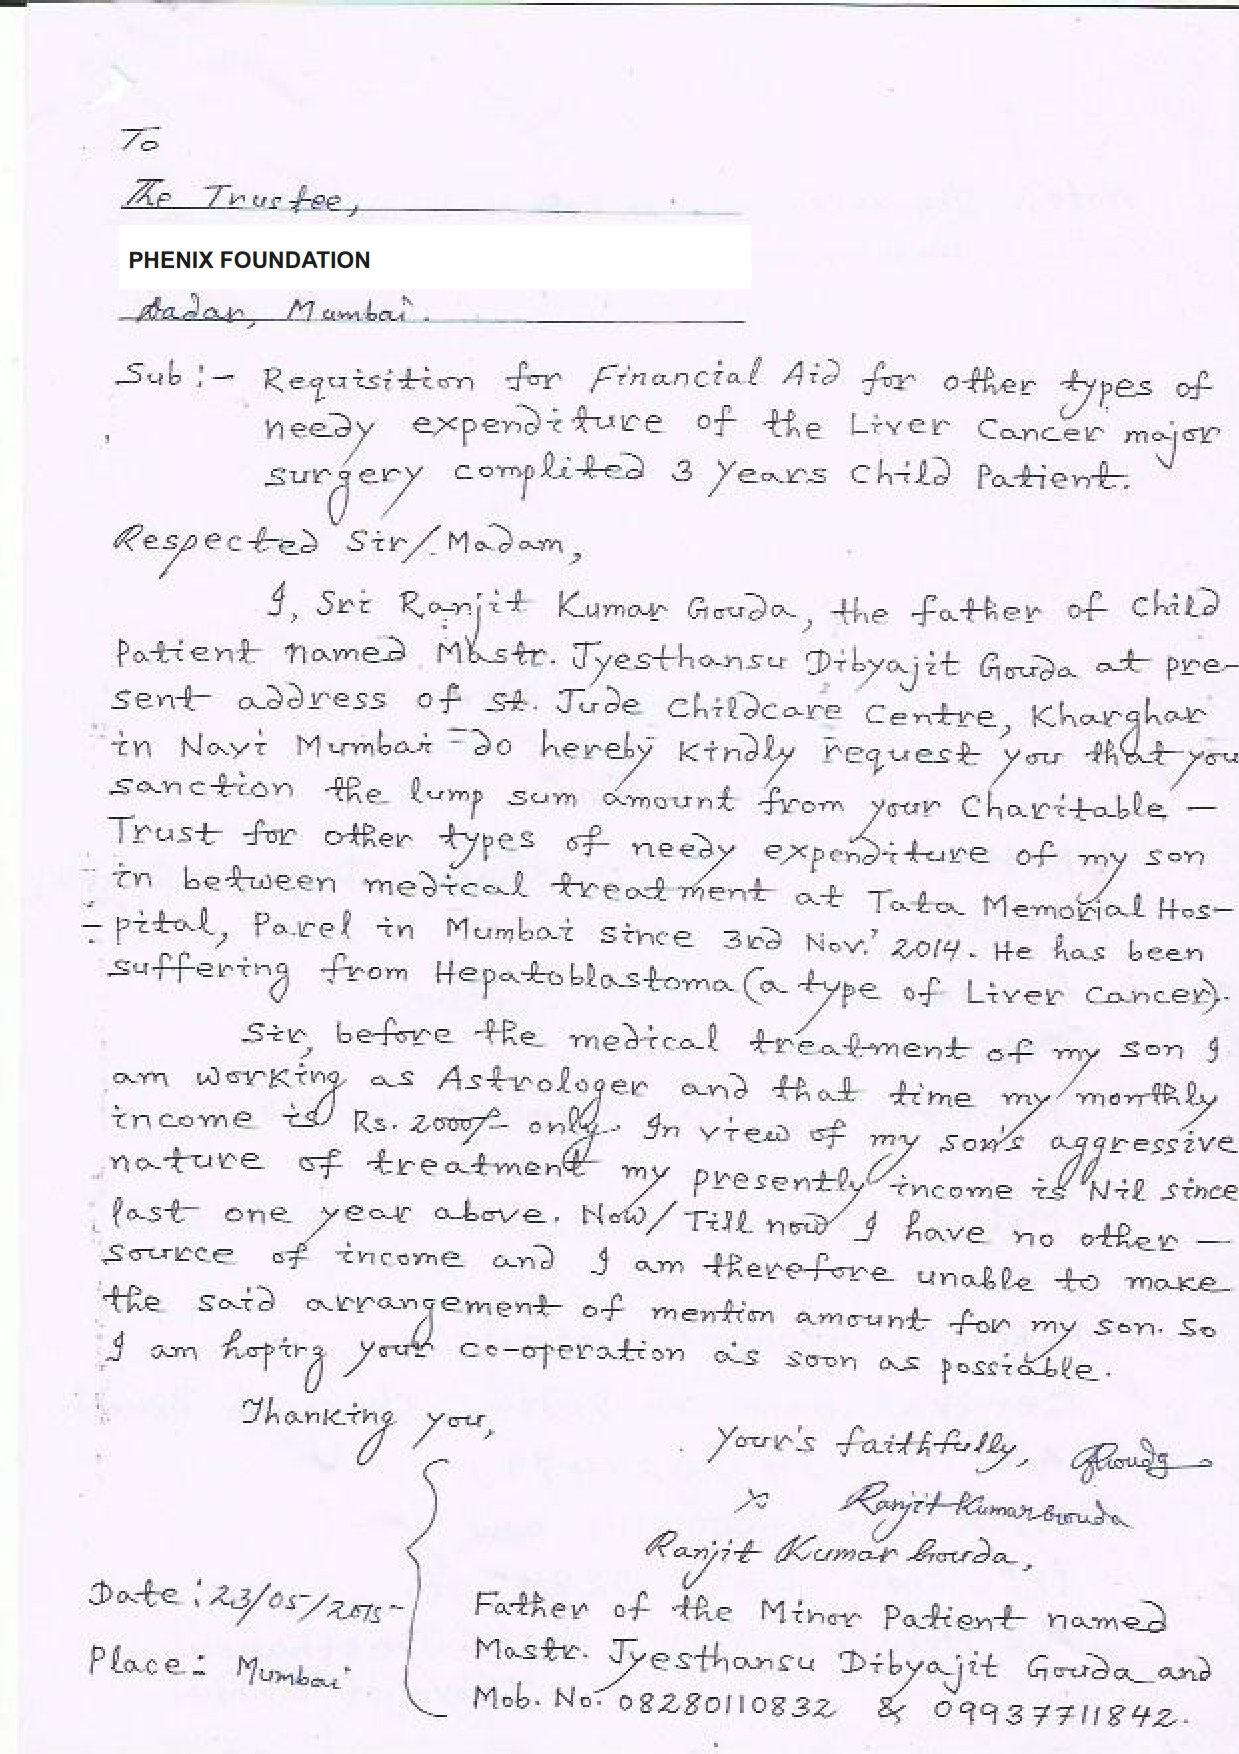 To
The Trustee,
PHENIX FOUNDATION
Dadar, Mumbai.
Sub :- Requisition for Financial Aid for other types of
needy expenditure of the Liver Cancer major
surgery complited 3 Years Child Patient.
Respected Sir/Madam,
I, Sri Ranjit Kumar Gouda, the father of Child
Patient named Mastr. Jyesthansu Dibyajit Gouda at pre-
sent address of St. Jude Childcare Centre, Kharghar
in Navi Mumbai do hereby kindly request you that you
sanction the lump sum amount from your Charitable -
Trust for other types of needy expenditure of my son
in between medical treatment at Tata Memorial Hos-
- pital, Parel in Mumbai since 3rd Nov.' 2014. He has been
suffering from Hepatoblastoma (a type of Liver Cancer).
Sir, before the medical treatment of my son I
am working as Astrologer and that time my monthly
income is Rs. 2000/- only. In view of my son's aggressive
nature of treatment my presently income is Nil since
last one year above. Now/Till now I have no other -
source of income and I am therefore unable to make
the said arrangement of mention amount for my son. So
I am hoping your co-operation as soon as possiable.
Thanking you,
Your's faithfully,
Ranjit Kumar Gouda
Ranjit Kumar Gouda,
Date : 23/05/2015
Father of the Minor Patient named
Place : Mumbai
Mastr. Jyesthansu Dibyajit Gouda and
Mob. No. 08280110832 & 09937711842.